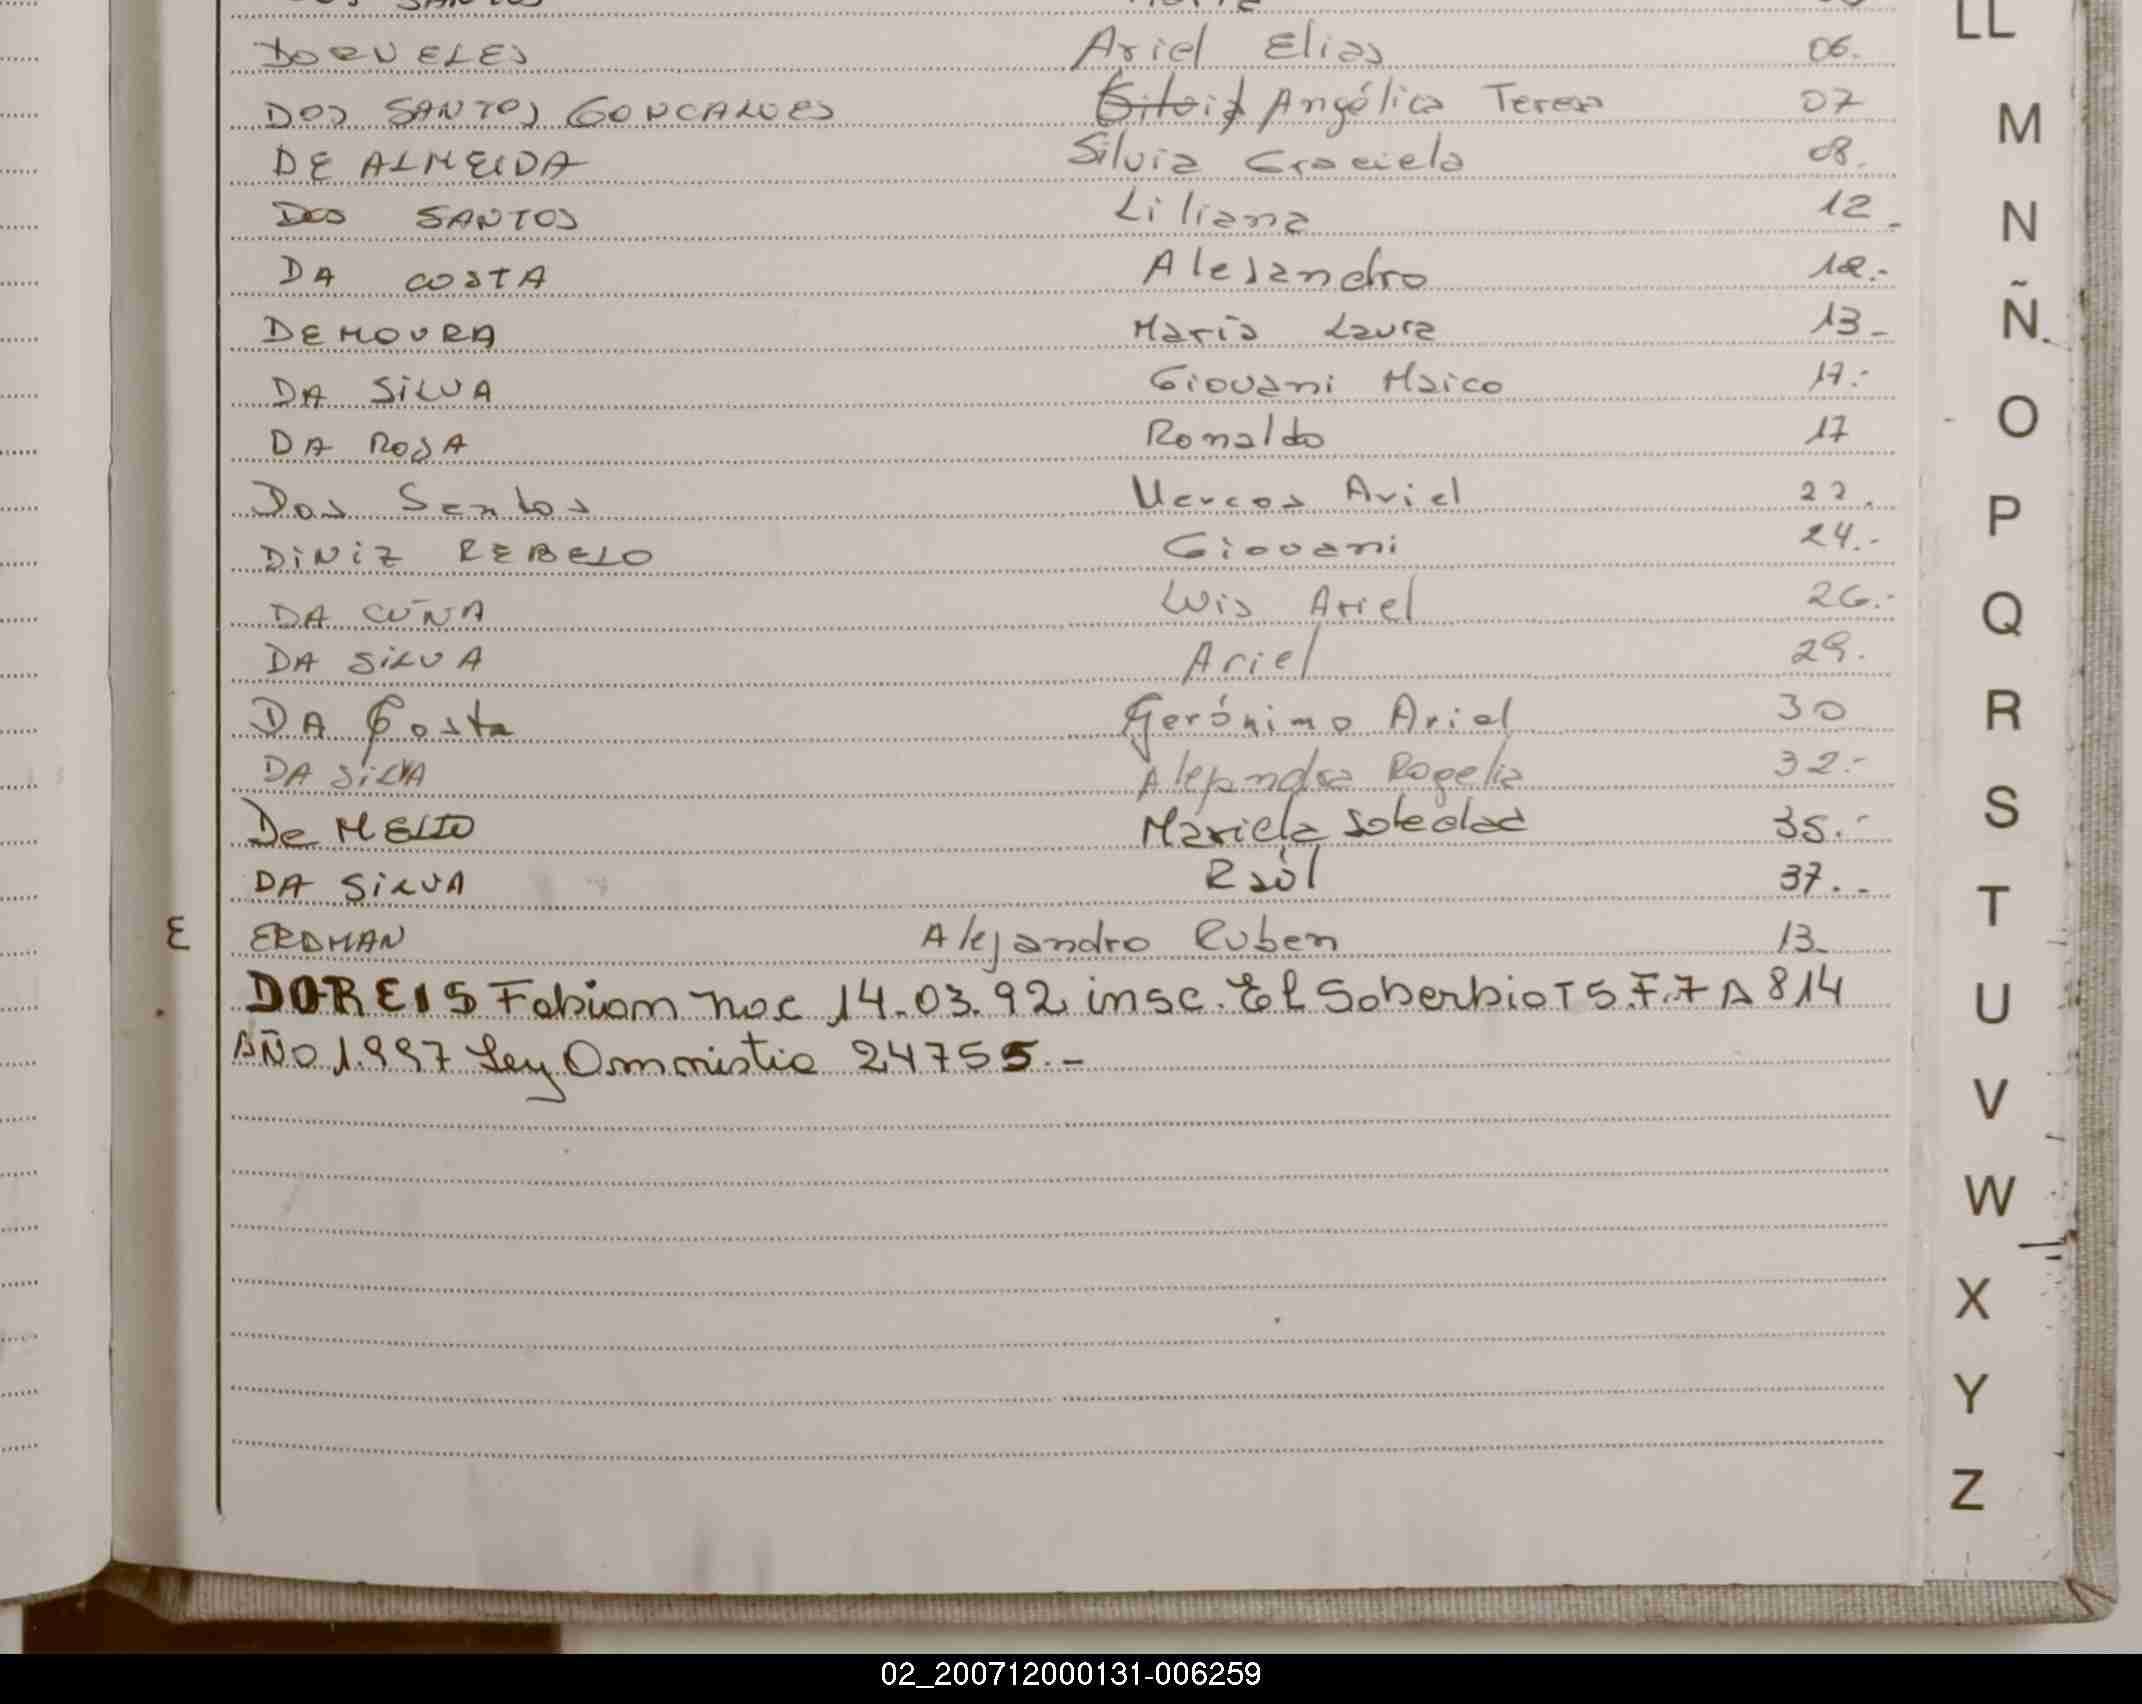 DORNELES Ariel Elias 06.
DOS SANTOS GONCALVES Silvia Angélica Teresa 07
DE ALMEIDA Silvia Graciela 08.
DOS SANTOS Liliana 12.-
DA COSTA Alejandro 12.-
DEMOURA Maria Laura 13.-
DA SILVA Giovani Maico 17.-
DA ROSA Ronaldo 17
Dos Santos Marcos Ariel 22.
DINIZ REBELO Giovani 24.-
DA CUÑA Luis Ariel 26.-
DA SILVA Ariel 29.
DA Costa Gerónimo Ariel 30
DA SILVA Alejandra Rogelia 32.-
De MELLO Mariela Soledad 35.-
DA SILVA Raúl 37.-
E ERDMAN Alejandro Ruben 13.-
DOREIS Fabian nac 14.03.92 insc. El Soberbio T 5. F. 7 A 814
AÑO 1.997 Ley Amnistia 24755.-
LL
M
N
Ñ
O
P
Q
R
S
T
U
V
W
X
Y
Z
02_200712000131-006259